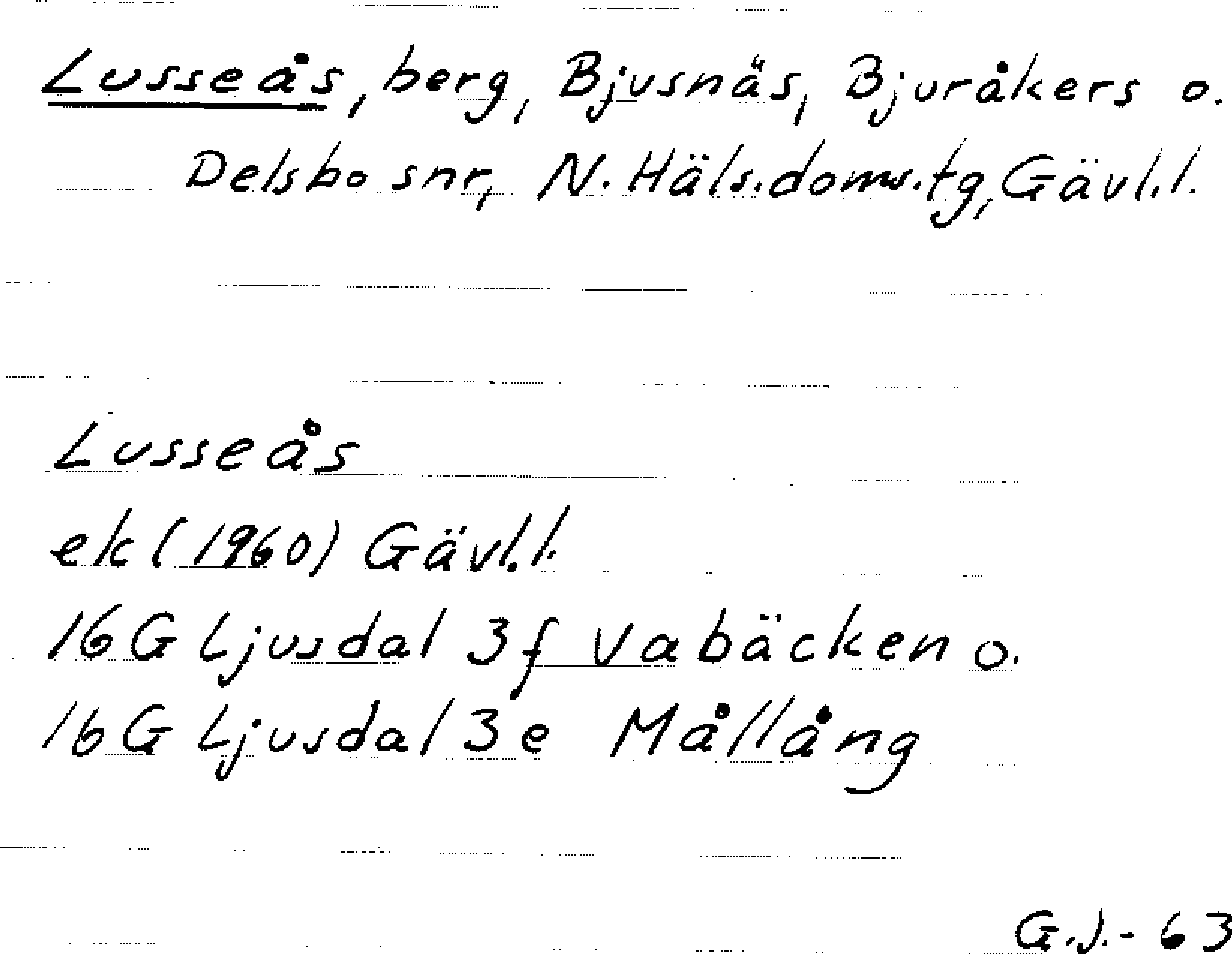 Lusseås, berg, Bjusnäs, Bjuråkers o.
Delsbo snr, N. Häls. doms. tg, Gävl. l.
Lusseås
ek (1960) Gävl. l.
16 G Ljusdal 3f Vabäcken o.
16 G Ljusdal 3e Mållång
G.J.- 63